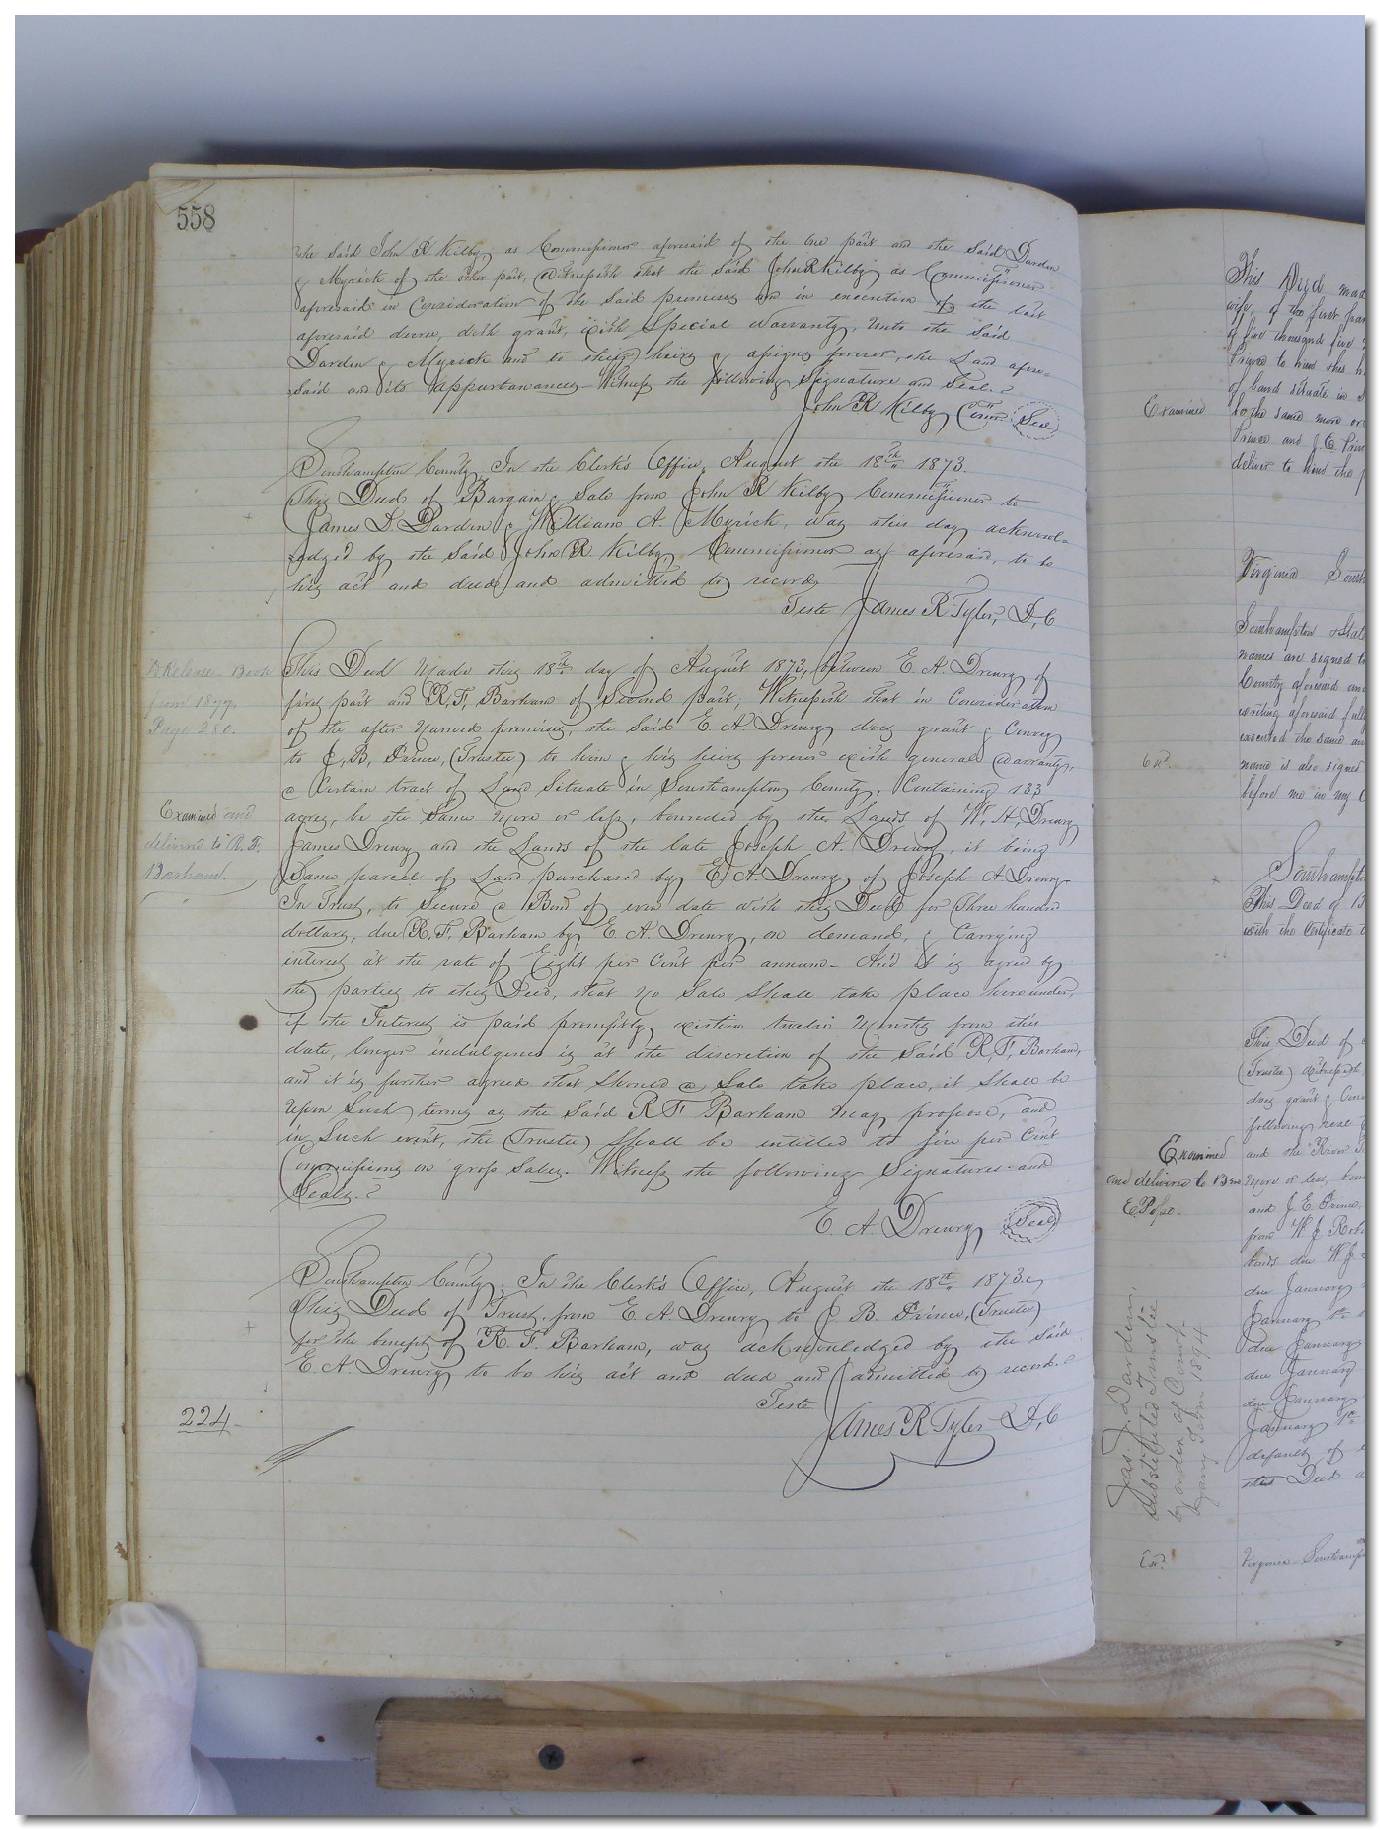 558
the said John R Kilby as Commissioner aforesaid of the one part and the said Darden
& Myrick of the other part, Witnesseth that the said John R Kilby as Commissioner
aforesaid in consideration of the said premises and in execution of the last
aforesaid decree, doth grant, with Special Warranty, unto the said
Darden & Myrick and to their heirs & assigns forever, the Land afore=
said and its appurtenances Witness the following signature and seal.
John R Kilby Comr Seal
Southampton County, In the Clerk's Office, August the 18th 1873.
This Deed of Bargain & Sale from John R Kilby Commissioner to
James D. Darden & William A. Myrick, was this day acknowl=
edged by the said John R. Kilby Commissioner as aforesaid, to be
his act and deed and admitted to record
Teste James R Tyler, D,C
A Release Book
from 1877,
Page 280.
This Deed made this 18th day of August 1873, between E A. Drewry of
first part and R, F, Barham of Second part, Witnesseth that in Consideration
of the after named premises, the said E. A. Drewry does grant & Convey
to J, B, Prince, (Trustee) to him & his heirs forever with general warranty,
a Certain tract of Land Situate in Southampton County, Containing 183
Examined and
delivered to R. F.
Barham.
acres, be the same more or less, bounded by the Lands of W, H, Drewry
James Drewry and the Lands of the late Joseph A. Drewry, it being
Same parcel of Land purchased by E. A. Drewry of Joseph A Drewry
In Trust, to Secure a Bond of even date with this Deed for Three hundred
dollars, due R. F, Barham by E A. Drewry, on demand, & Carrying
interest at the rate of Eight per Cent per annum - And it is agreed by
the parties to this Deed, that no Sale Shall take place hereunder,
if the Interest is paid promptly within twelve months from this
date, longer indulgence is at the discretion of the said R, F, Barham,
and it is further agreed that should a Sale take place, it shall be
upon such terms as the said R F Barham may propose, and
in such event, the (Trustee) shall be entitled to five per Cent
Commissions on gross sales. Witness the following Signatures and
Seals.
E. A. Drewry Seal
Southampton County, In the Clerk's Office, August the 18th 1873.
This Deed of Trust, from E. A. Drewry to J. B. Prince, (Trustee)
for the benefit of R. F. Barham, was acknowledged by the said
E. A. Drewry to be his act and deed and admitted to record.
Teste
James R Tyler D,C
224
This Deed
wife, of the first
of five thousand five
of Land situate in
Examined
to the same more or
Prince and J. E.
deliver to
Virginia
Southampton
names are signed
County aforesaid
writing aforesaid
executed the same
name is also signed
before me in my
This Deed of
with the Certificate
This Deed of
(Trustee)
does grant &
following
Examined
and delivered to Ben
E. Pope.
and the River
more or less
and J. E. Prince,
from W J
bonds due W J
due January
January
due January
due January
due January
January 1st
default of
this Deed
Jas. J. Darden,
Substituted Trustee
by order of Court
1894
Virginia